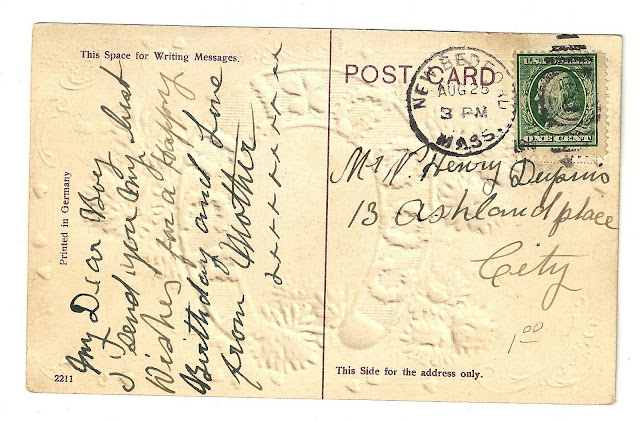 This Space for Writing Messages.
My Dear Boy
I send you my best
Wishes for a Happy
Birthday and Love
from Mother
x x x x x x x x
Printed in Germany
2211
POST CARD
NEW BEDFORD
AUG 25
3 PM
MASS.
ONE CENT
Mr N. Henry
13 Ashland place
City
1.00
This Side for the address only.